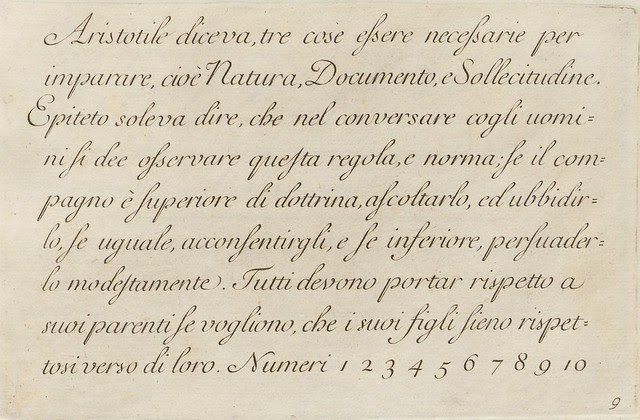 Aristotile diceva, tre cose eſsere neceſsarie per
imparare, cioè Natura, Documento, e Sollecitudine.
Epiteto soleva dire, che nel conversare cogli uomi=
ni ſi dee oſservare queſta regola, e norma; ſe il com=
pagno è ſuperiore di dottrina, aſcoltarlo, ed ubbidir=
lo, ſe uguale, acconſentirgli, e ſe inferiore, perſuader=
lo modeſtamente. Tutti devono portar rispetto a
suoi parenti ſe vogliono, che i ſuoi figli ſieno rispet=
tosi verso di loro. Numeri 1 2 3 4 5 6 7 8 9 10
9